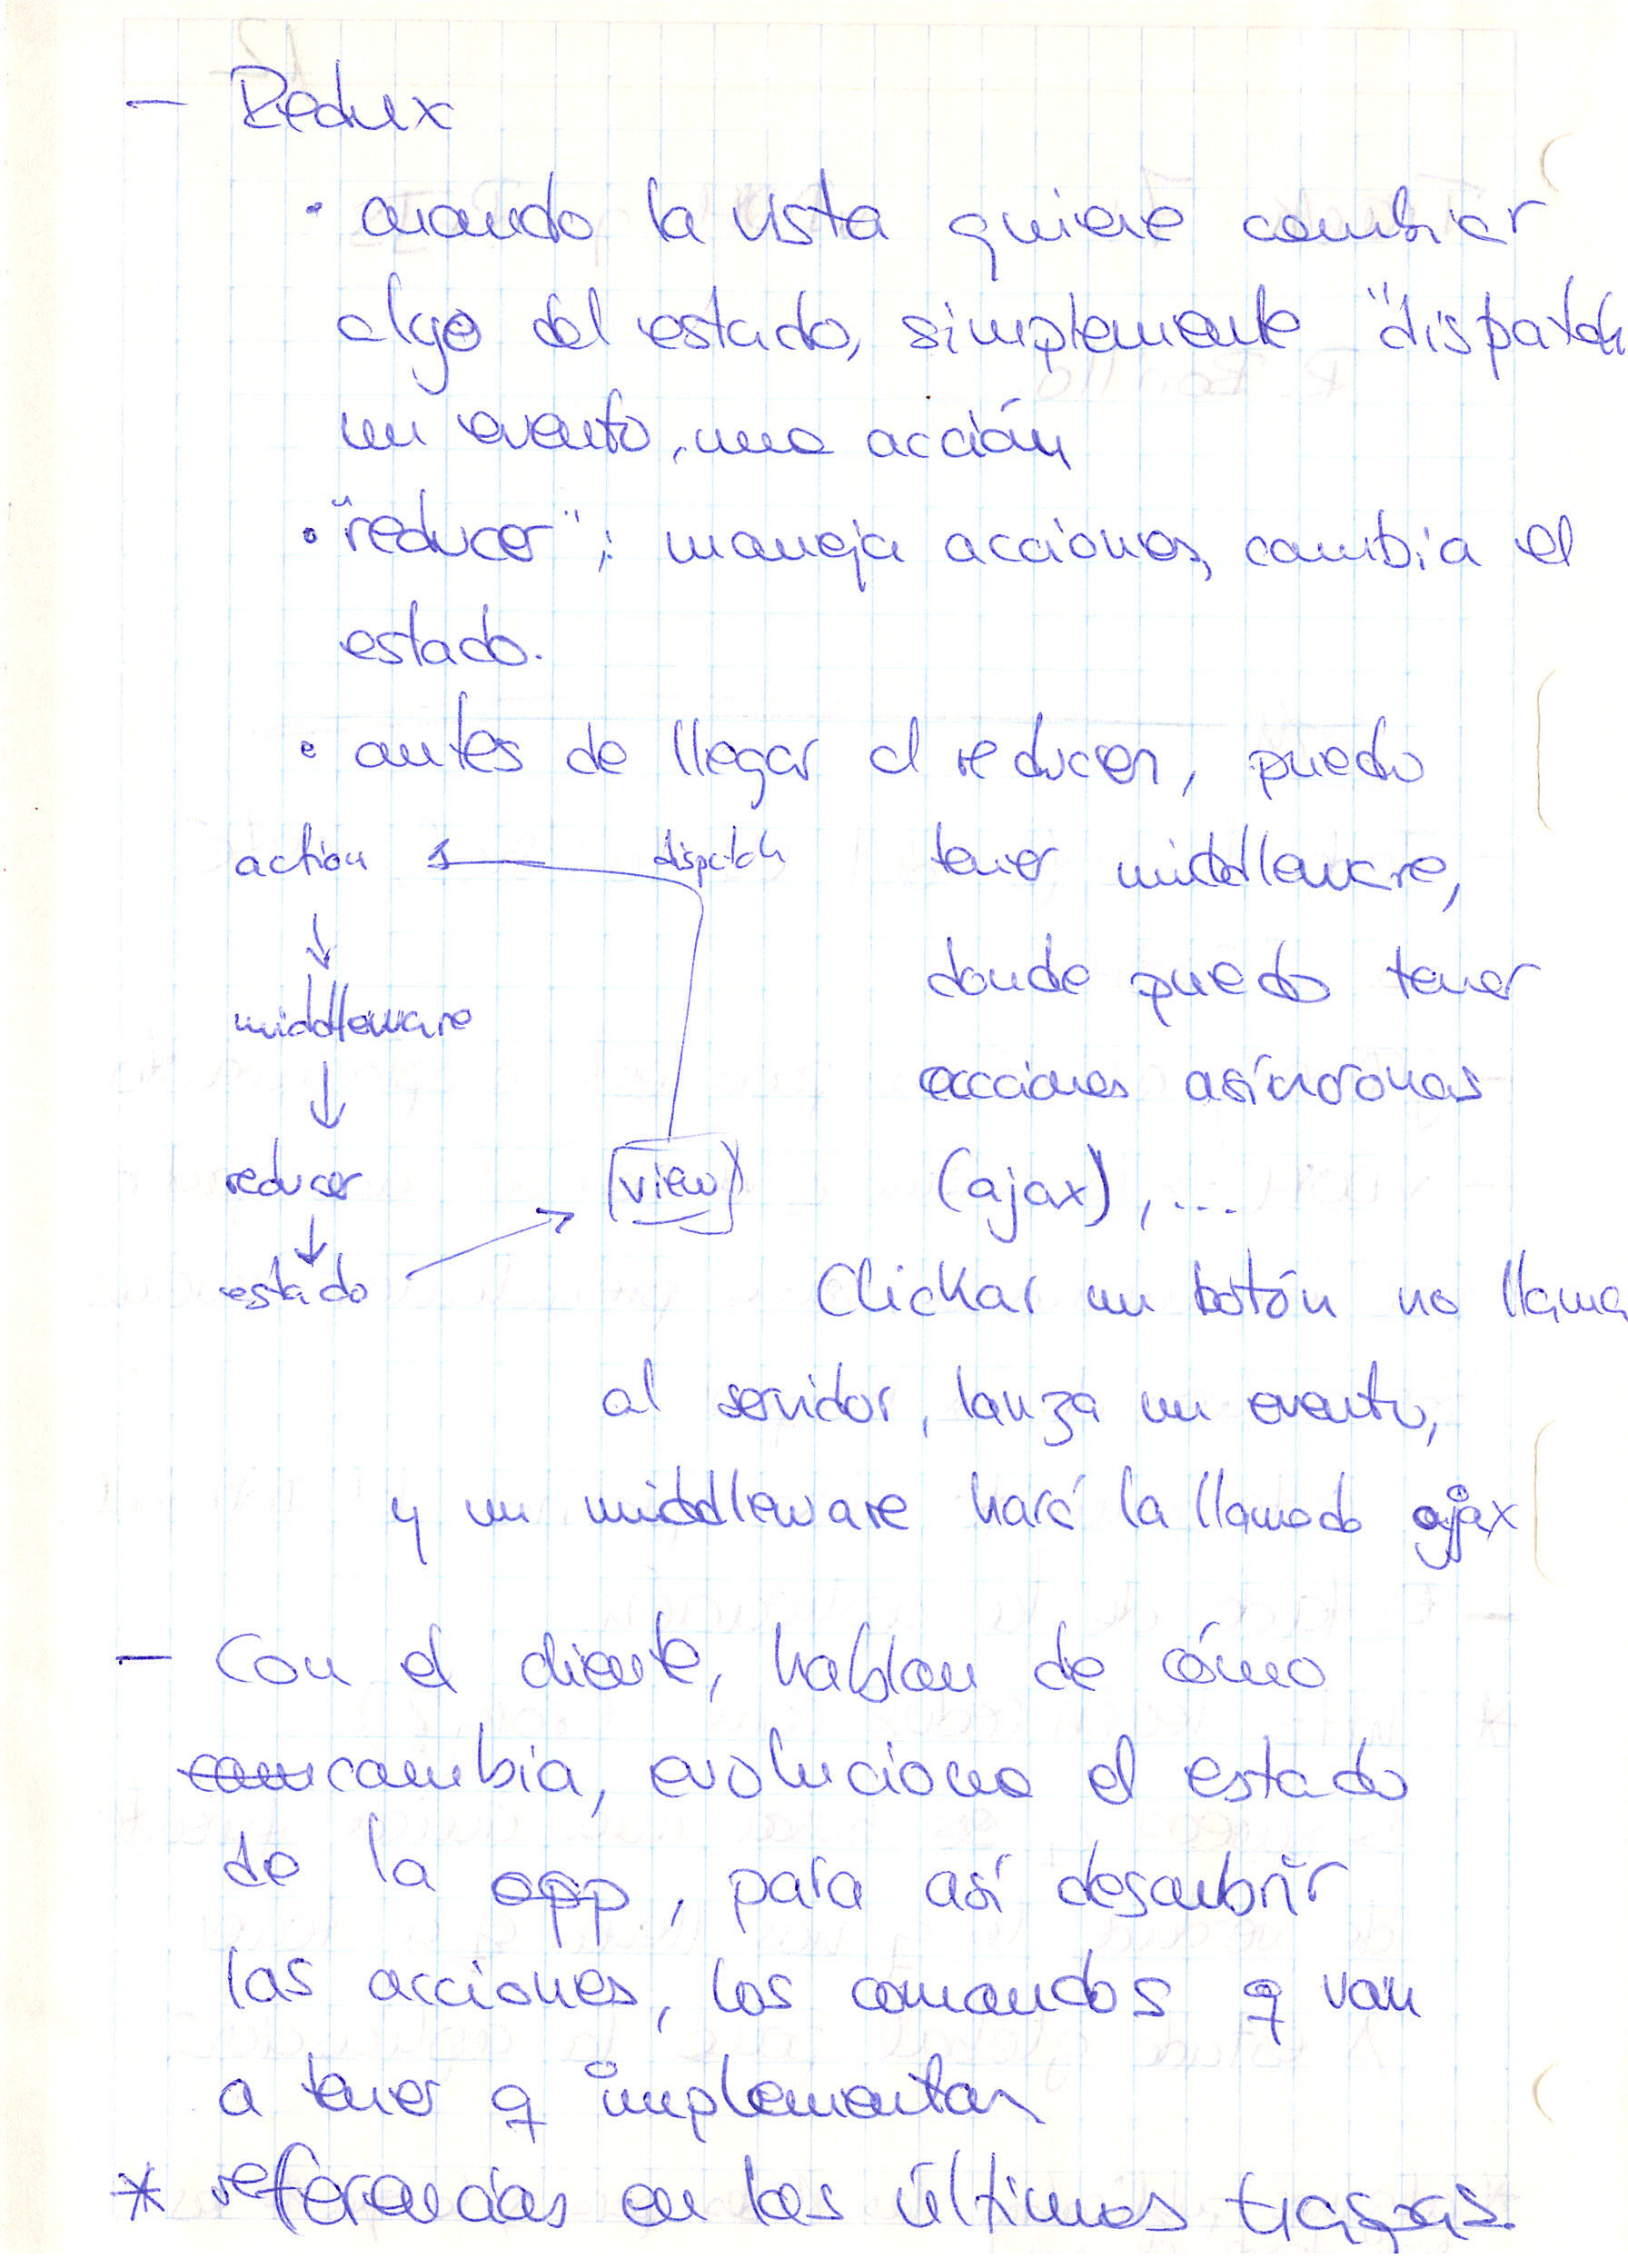 — Redux
· cuando la vista quiere cambiar
algo del estado, simplemente "dispatch
un evento, una acción
· "reducer": maneja acciones, cambia el
estado.
· antes de llegar al reducer, puedo
tener middleware,
donde puedo tener
acciones asíncronas
(ajax), ...
action dispatch
middleware
reducer view
estado
Clickar un botón no llama
al servidor, lanza un evento,
y un middleware hará la llamada ajax
— Con el cliente, hablan de cómo
cambia, evoluciona el estado
de la app, para así descubrir
las acciones, los comandos q van
a tener q implementar
* referencias en las últimas